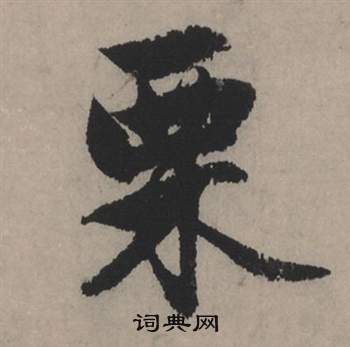 栗
词典网